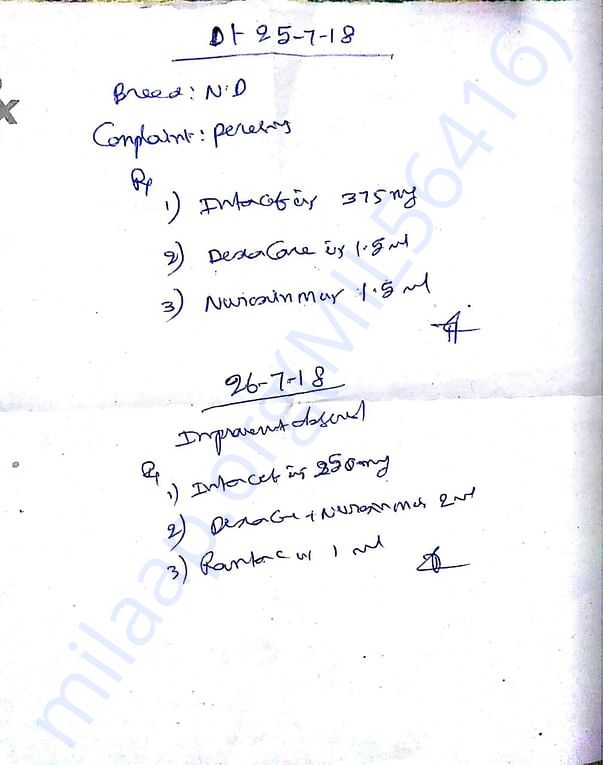 Dt 25-7-18
Breed: N.D
Complaint: paresis
Rx
1) Intacef inj 375 mg
2) Dexacare inj 1.5 ml
3) Nuroxin 1.5 ml
26-7-18
Improvement observed
Rx
1) Intacef inj 250 mg
2) + 2 ml
3) Rantac inj 1 ml
milaap.org(MIL56416)